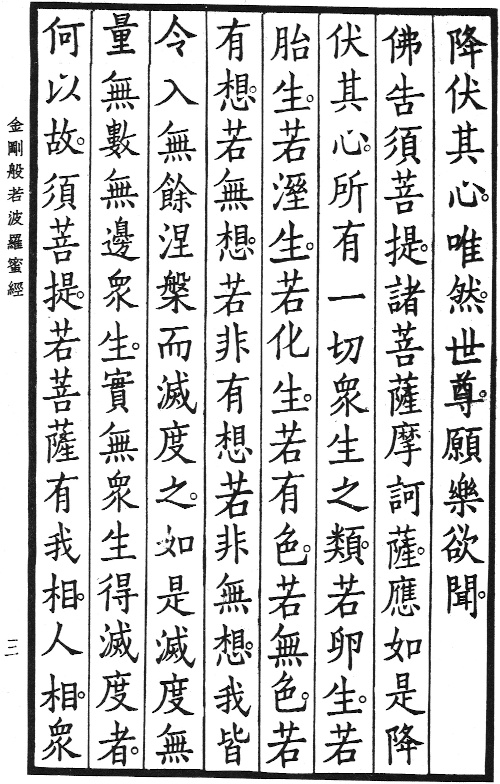 降伏其心。唯然。世尊。願樂欲聞。
佛告須菩提。諸菩薩摩訶薩。應如是降
伏其心。所有一切衆生之類。若卵生。若
胎生。若溼生。若化生。若有色。若無色。若
有想。若無想。若非有想若非無想。我皆
令入無餘涅槃而滅度之。如是滅度無
量無數無邊衆生。實無衆生得滅度者。
何以故。須菩提。若菩薩有我相。人相。衆
金剛般若波羅蜜經
三